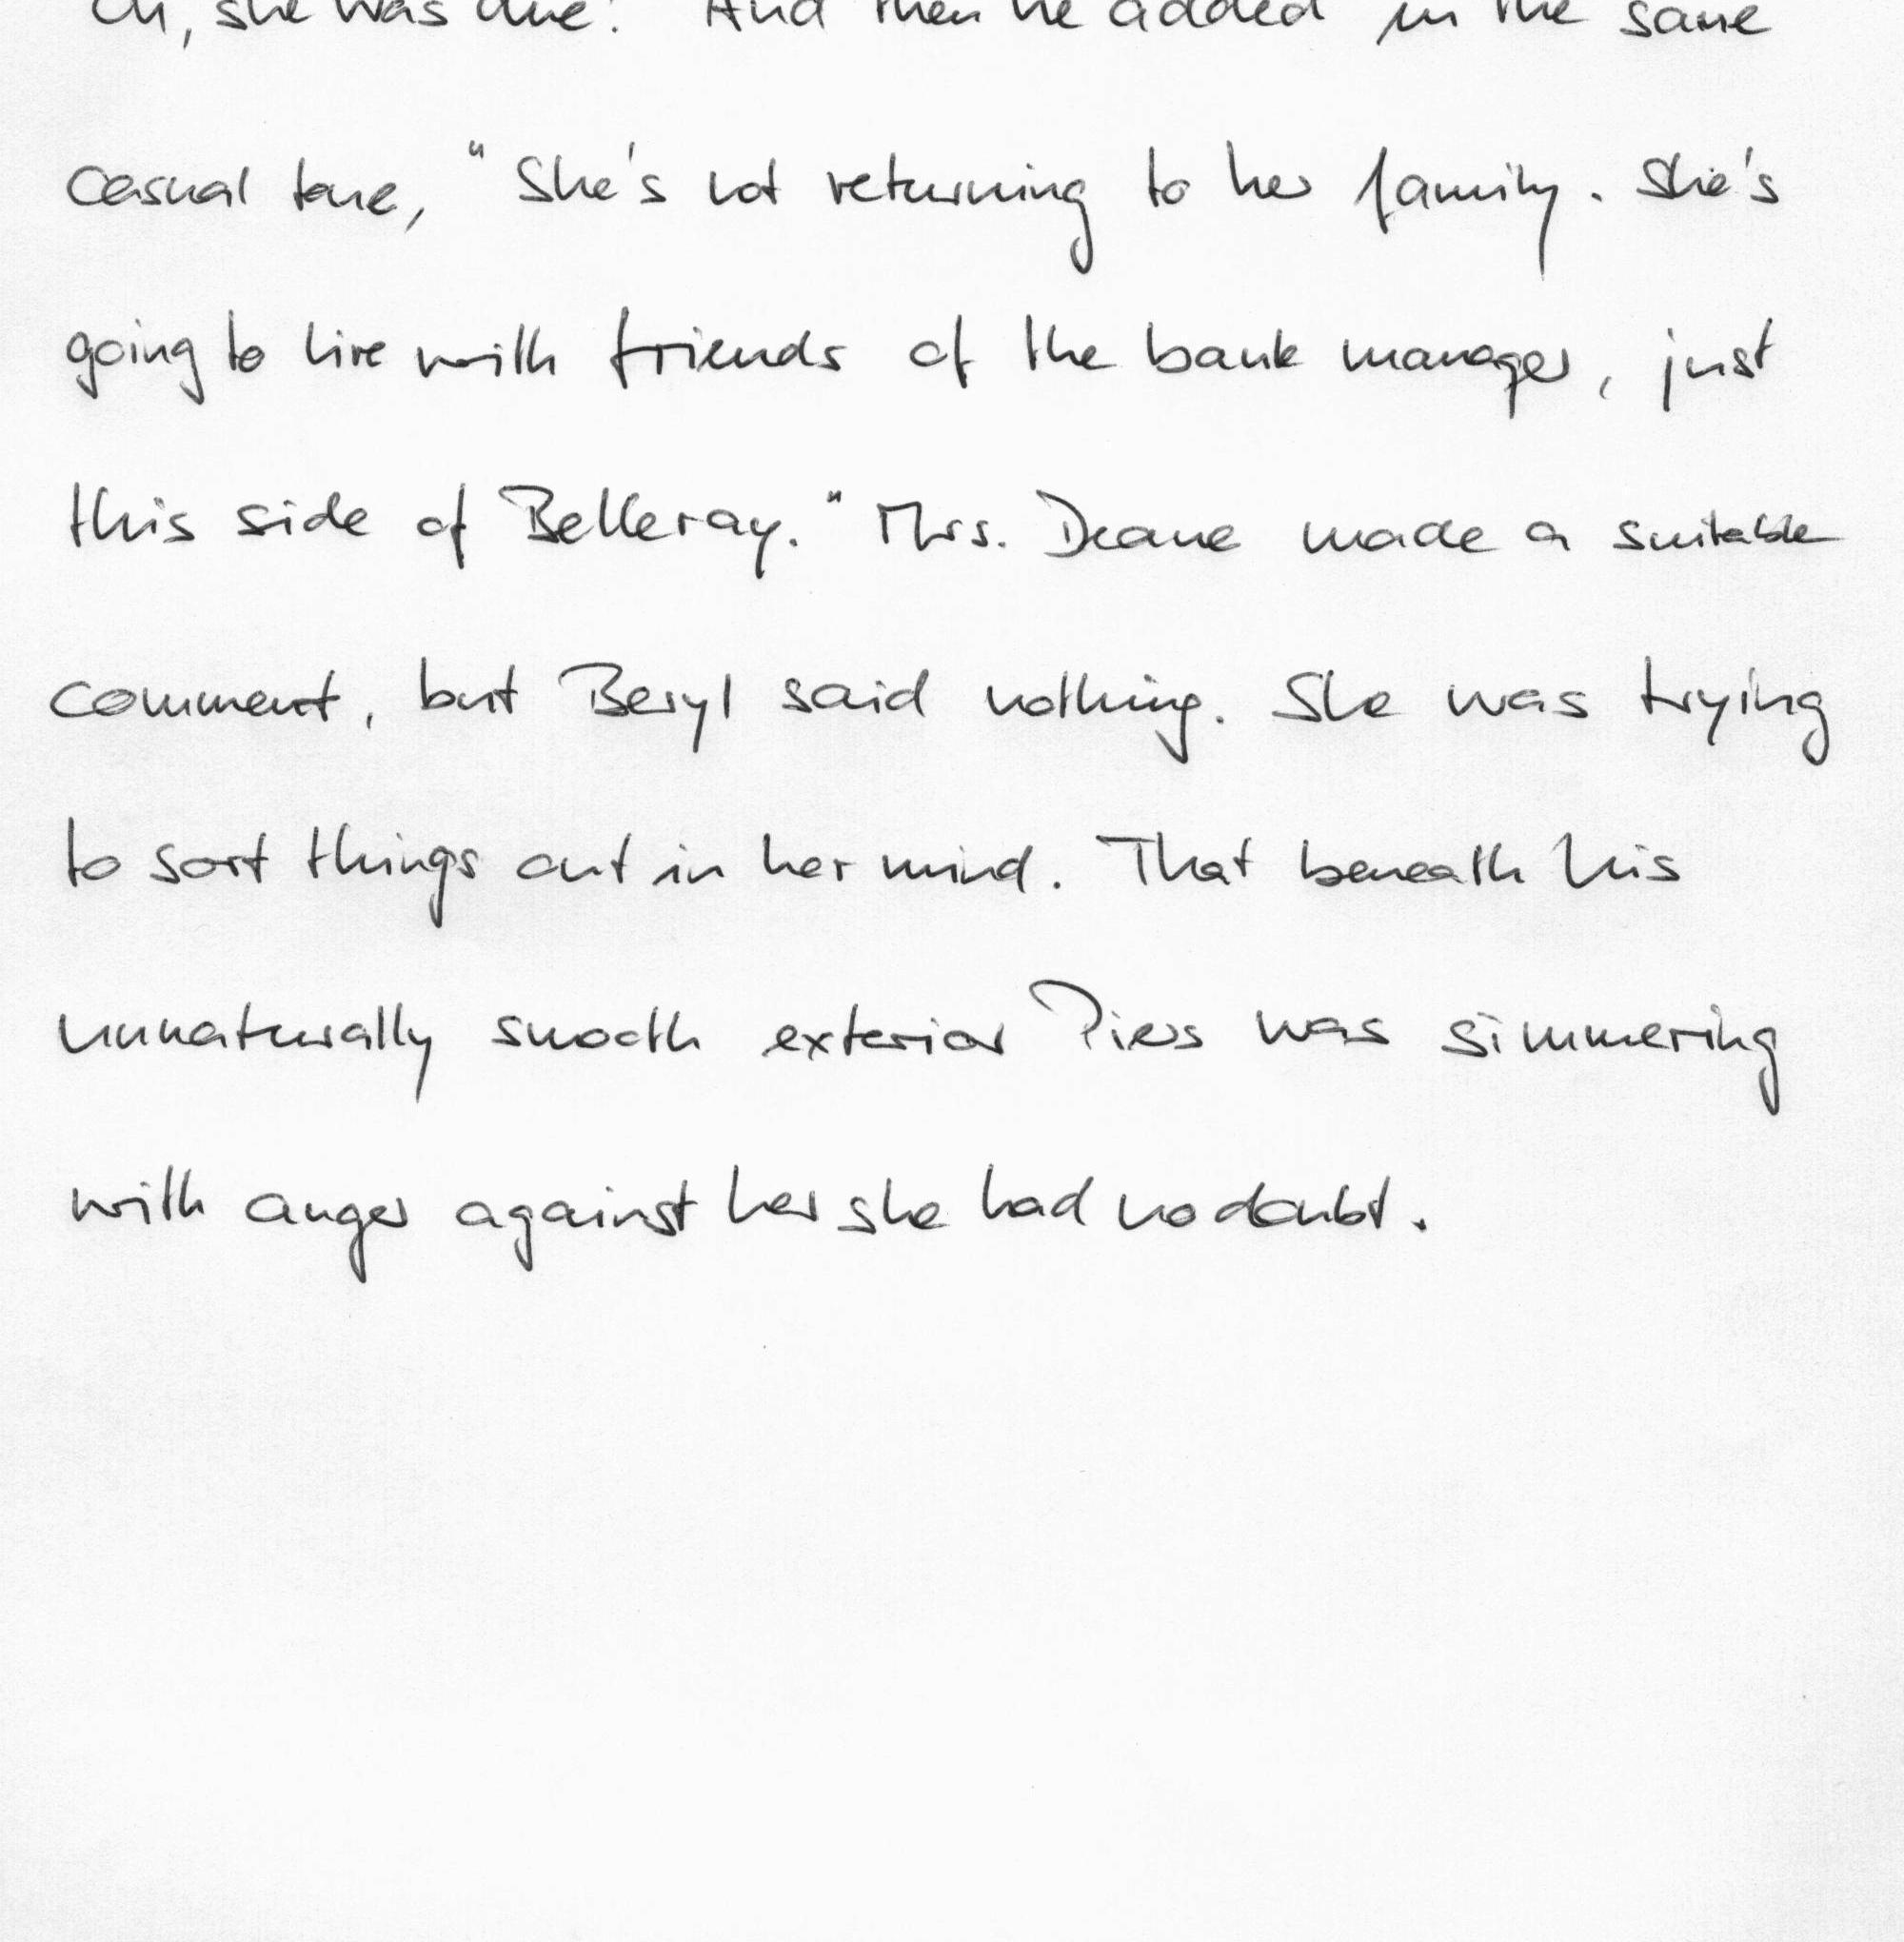 Oh, she was And then he added in the same
casual tone, "She's not returning to her family. She's
going to live with friends of the bank manager, just
this side of Belleray." Mrs. Deane made a suitable
comment, but Beryl said nothing. She was trying
to sort things out in her mind. That beneath his
unnaturally smooth exterior Piers was simmering
with anger against her she had no doubt.